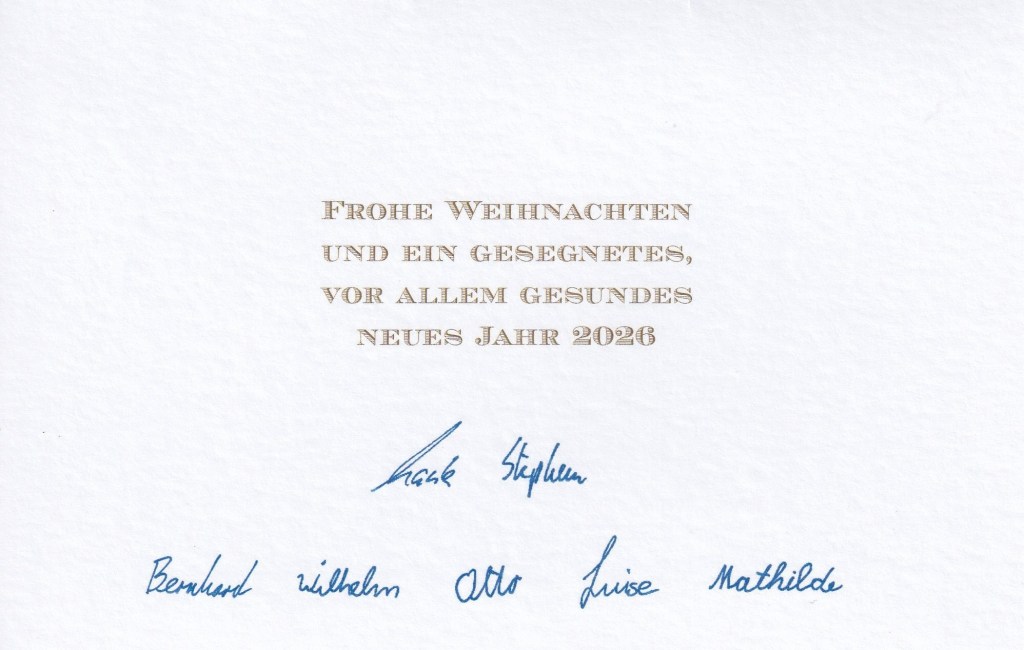 Frohe Weihnachten
und ein gesegnetes,
vor allem gesundes
neues Jahr 2026
Stephan
Bernhard Wilhelm Otto Luise Mathilde